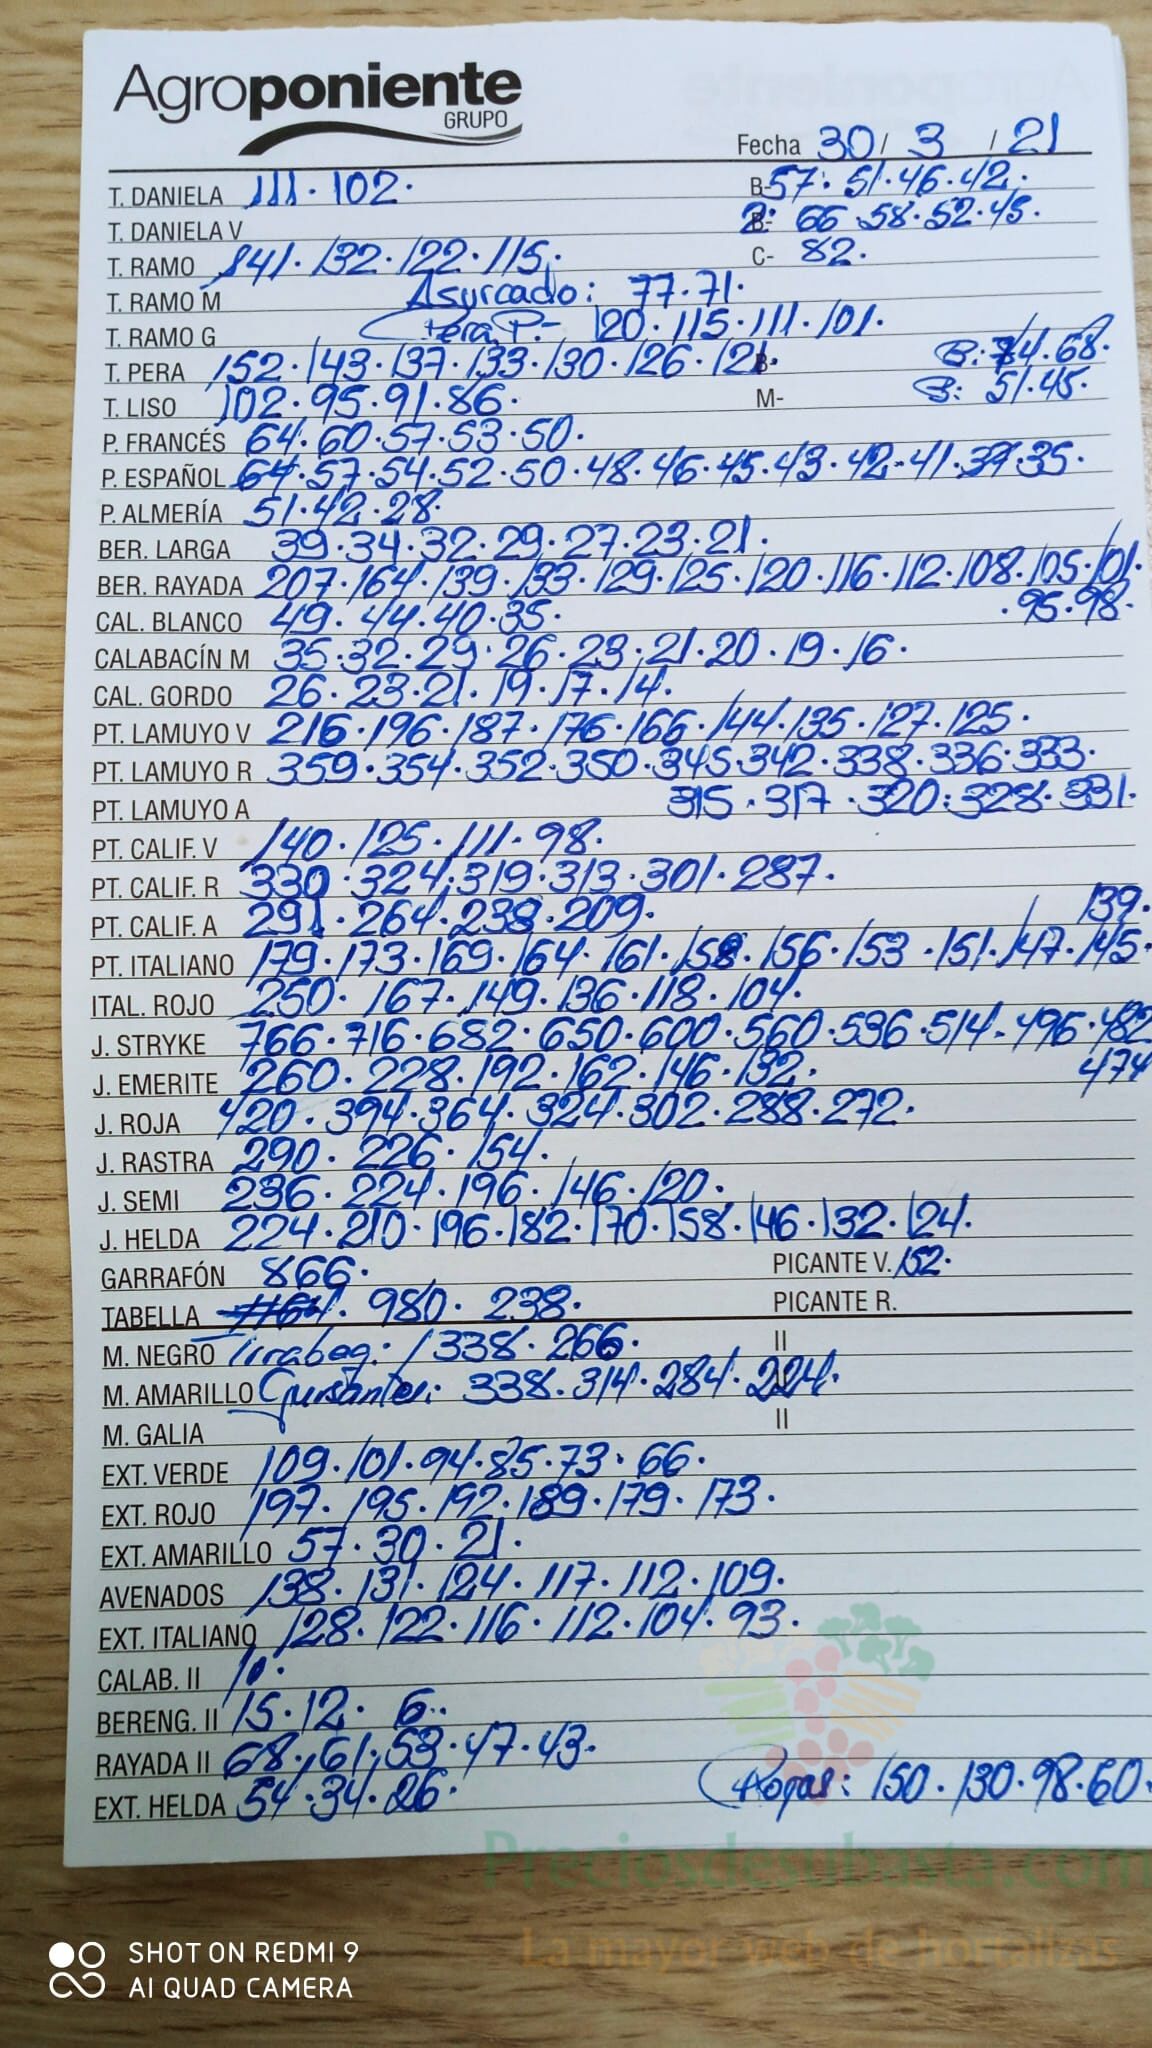 Agroponiente
GRUPO
Fecha 30/ 3 / 21
T. DANIELA 111. 102. B-57. 51. 46. 42.
T. DANIELA V 2: 66 . 58. 52. 45.
T. RAMO 141. 132. 122. 115. C- 82.
T. RAMO M Asurcado: 77. 71.
T. RAMO G Pera P- 120. 115. 111. 101.
T. PERA 152. 143. 137. 133. 130. 126. 121. B: 74. 68.
T. LISO 102. 95. 91. 86. M- B: 51. 45.
P. FRANCÉS 64. 60. 57. 53. 50.
P. ESPAÑOL 64. 57. 54. 52. 50. 48. 46. 45. 43. 42. 41. 39. 35.
P. ALMERÍA 51. 42. 28.
BER. LARGA 39. 34. 32. 29. 27. 23. 21.
BER. RAYADA 207. 164. 139. 133. 129. 125. 120. 116. 112. 108. 105. 101.
CAL. BLANCO 49. 44. 40. 35. . 95. 98.
CALABACÍN M 35. 32. 29. 26. 23. 21. 20. 19. 16.
CAL. GORDO 26. 23. 21. 19. 17. 14.
PT. LAMUYO V 216. 196. 187. 176. 166. 144. 135. 127. 125.
PT. LAMUYO R 359. 354. 352. 350. 345. 342. 338. 336. 333.
PT. LAMUYO A 315. 317. 320. 328. 331.
PT. CALIF. V 140. 125. 111. 98.
PT. CALIF. R 330. 324. 319. 313. 301. 287.
PT. CALIF. A 291. 264. 238. 209. 139.
PT. ITALIANO 179. 173. 169. 164. 161. 158. 156. 153. 151. 147. 145.
ITAL. ROJO 250. 167. 149. 136. 118. 104.
J. STRYKE 766. 716. 682. 650. 600. 560. 536. 514. 496. 482
J. EMERITE 260. 228. 192. 162. 146. 132. 474
J. ROJA 420. 394. 364. 324. 302. 288. 272.
J. RASTRA 290. 226. 154.
J. SEMI 236. 224. 196. 146. 120.
J. HELDA 224. 210. 196. 182. 170. 158. 146. 132. 124.
GARRAFÓN 866. PICANTE V. 152.
TABELLA 980. 238. PICANTE R.
M. NEGRO Tirabeq: 1338. 266. II
M. AMARILLO Guisantes: 338. 314. 284. 224.
M. GALIA II
EXT. VERDE 109. 101. 94. 85. 73. 66.
EXT. ROJO 197. 195. 192. 189. 179. 173.
EXT. AMARILLO 57. 30. 21.
AVENADOS 138. 131. 124. 117. 112. 109.
EXT. ITALIANO 128. 122. 116. 112. 104. 93.
CALAB. II 10.
BERENG. II 15. 12. 6.
RAYADA II 68. 61. 53. 47. 43.
EXT. HELDA 54. 34. 26. 150. 130. 98. 60.
Preciosdesubasta.com
La mayor web de hortalizas
SHOT ON REDMI 9
AI QUAD CAMERA